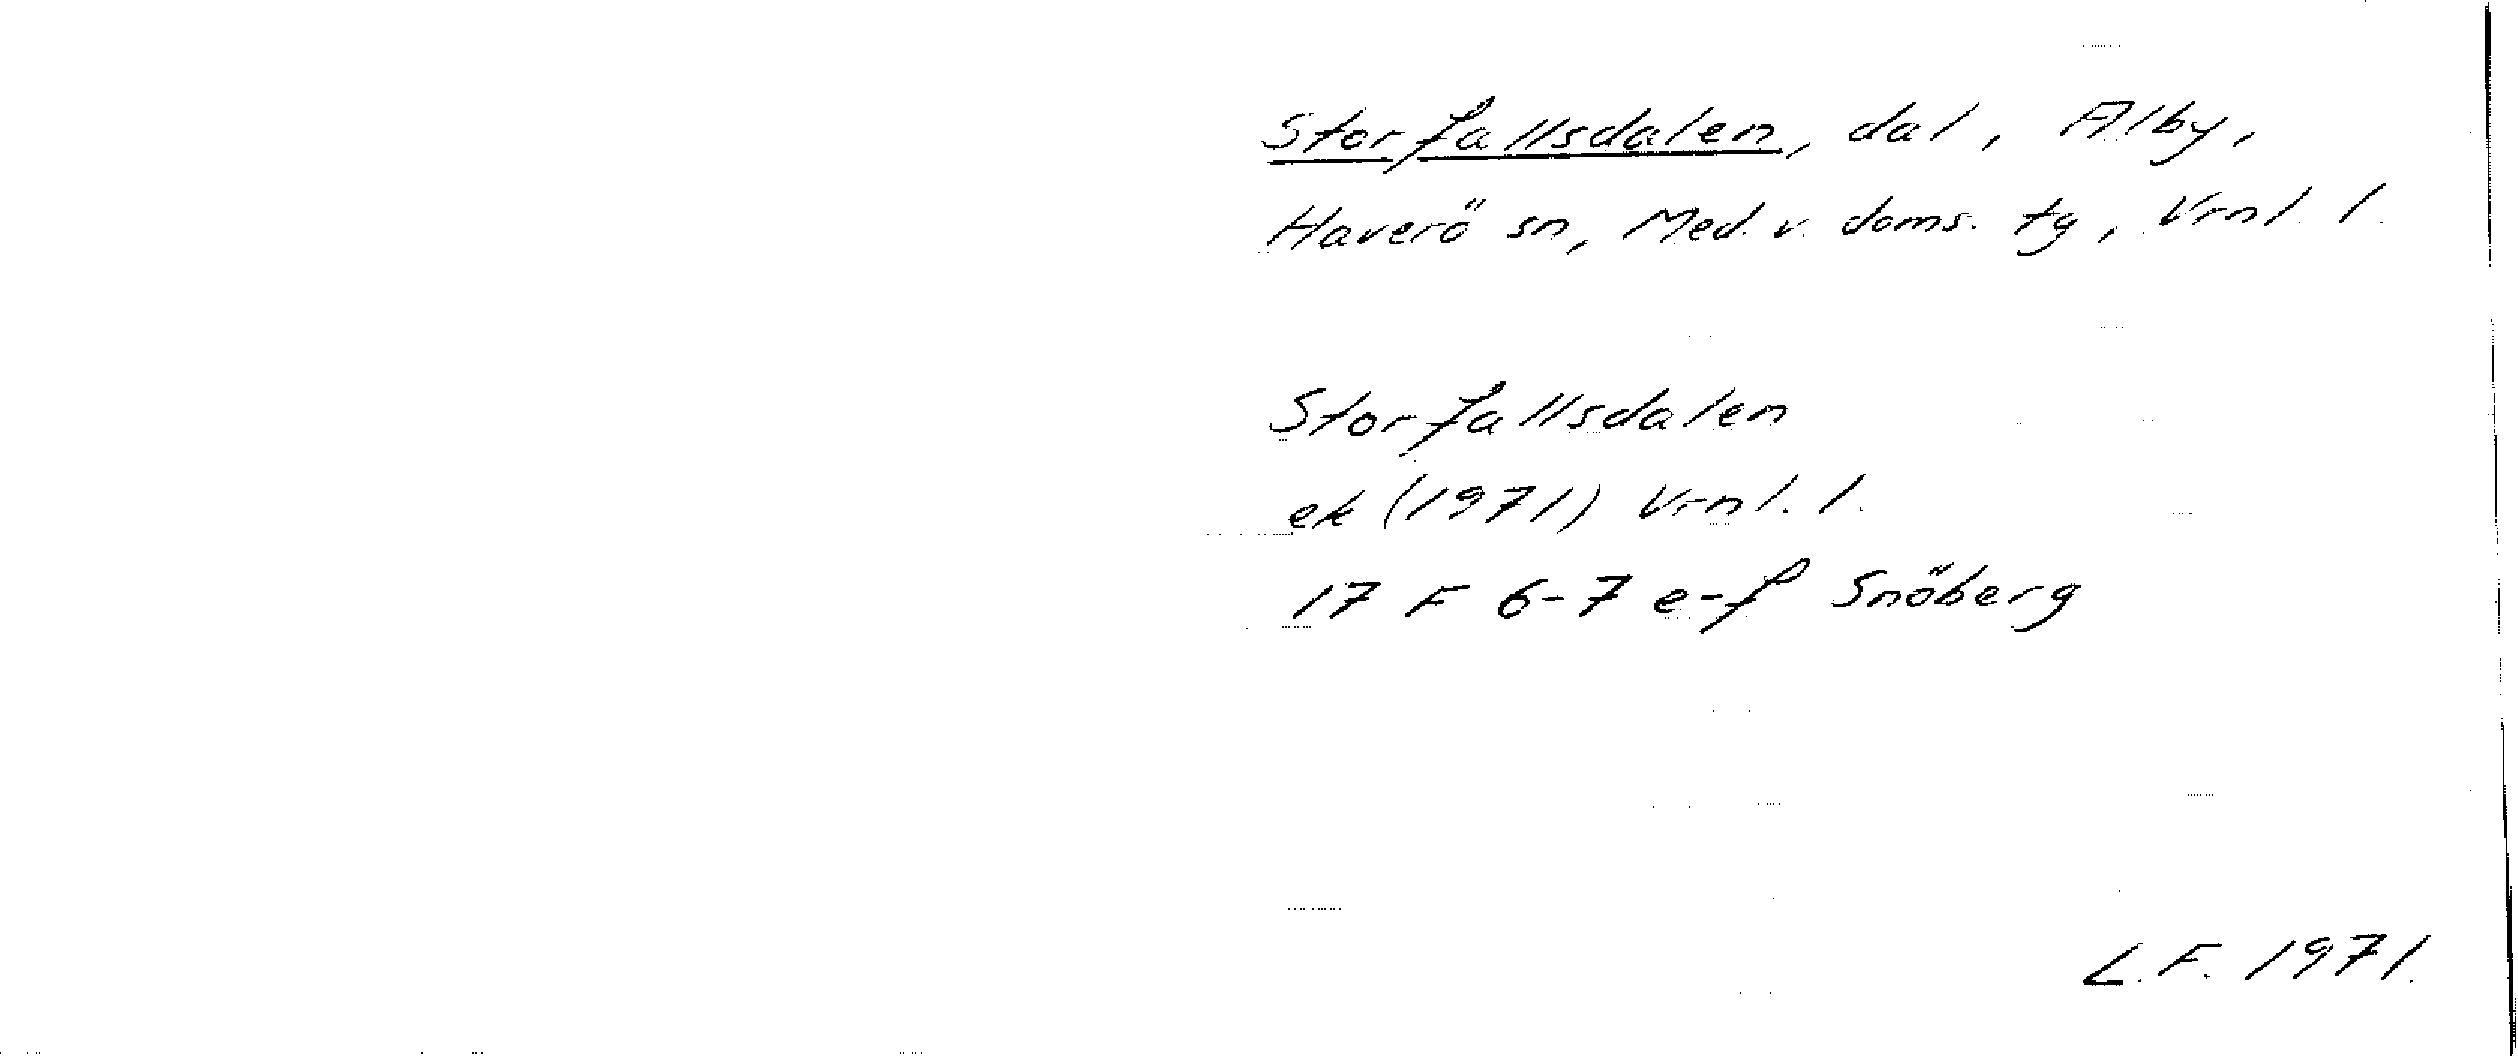 Storfallsdalen, dal, Alby,
Haverö sn, Med. v. doms. tg, Vrnl. l.
Storfallsdalen
ek (1971) Vrnl. l.
17 F 6-7 e-f Snöberg
L.F. 1971.